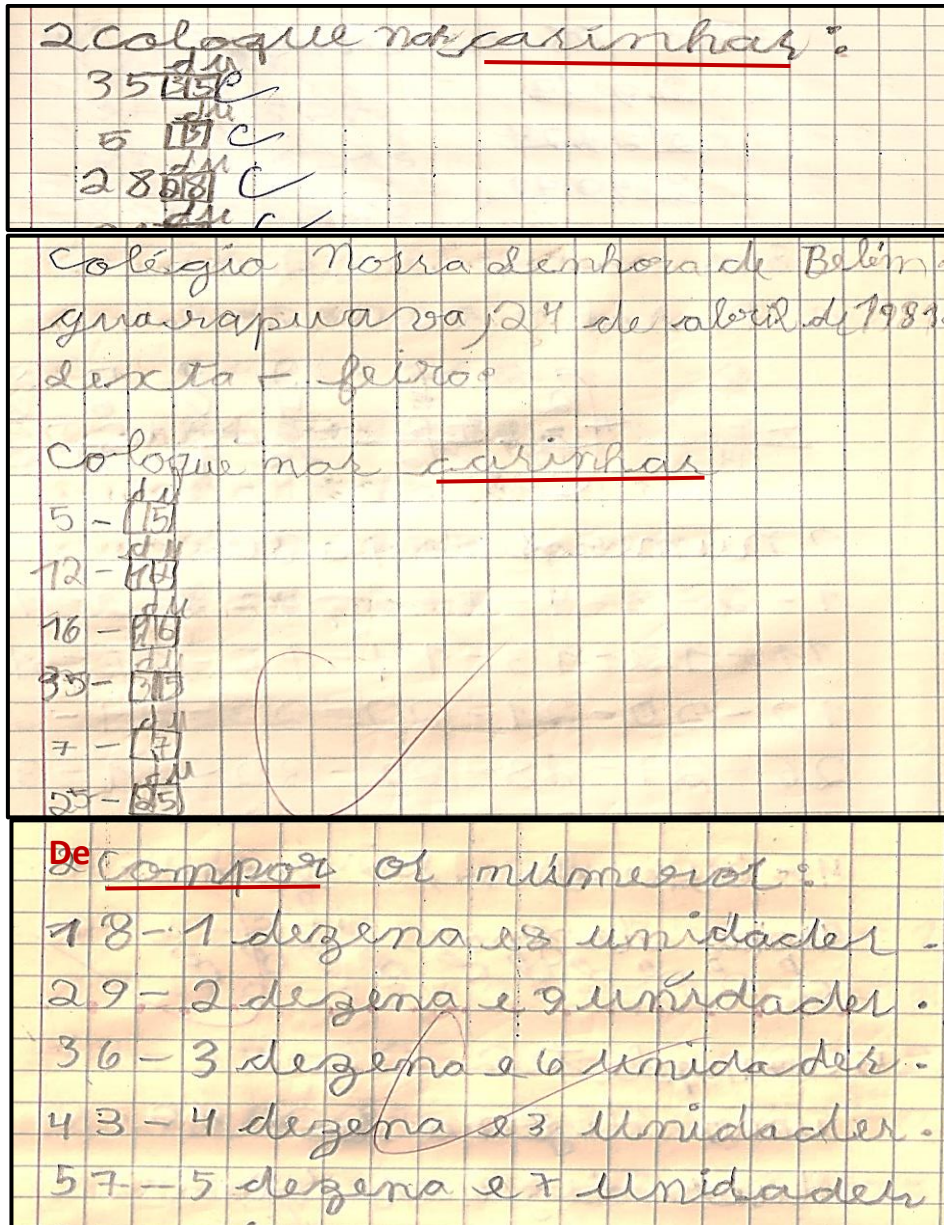 2 Coloque nas casinhas:
d u
35 35 C
d u
5 5 C
d u
28 28 C
d u
C
Colégio Nossa Senhora de Belém.
guarapuava, 24 de abril de 1981.
sexta-feira.
Coloque nas casinhas
d u
5 - 5
d u
12 - 12
d u
16 - 16
d u
35 - 35
d u
7 - 7
d u
25 - 25
De
2 Compor os números:
18 - 1 dezena e 8 unidades.
29 - 2 dezena e 9 unidades.
36 - 3 dezena e 6 unidades.
43 - 4 dezena e 3 unidades.
57 - 5 dezena e 7 unidades